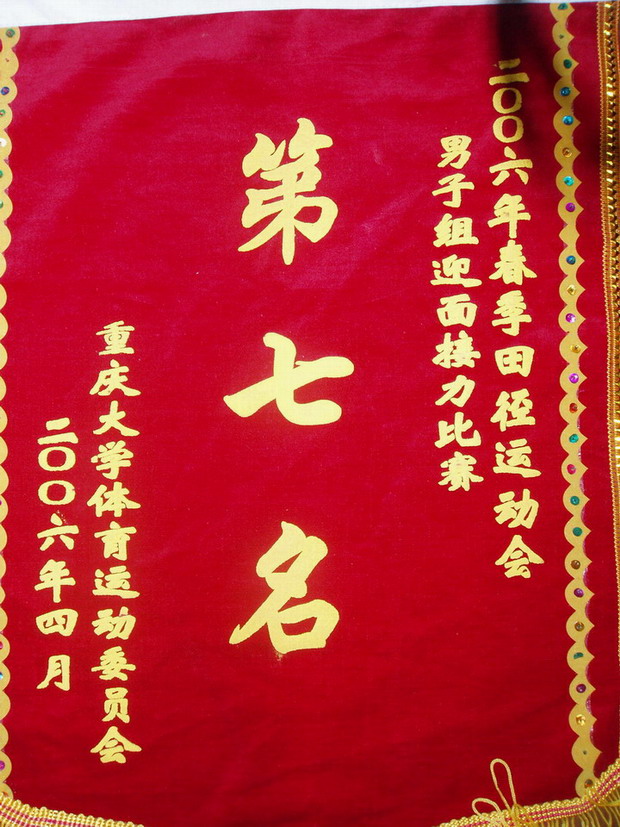 二〇〇六年春季田径运动会
男子组迎面接力比赛
第七名
重庆大学体育运动委员会
二〇〇六年四月